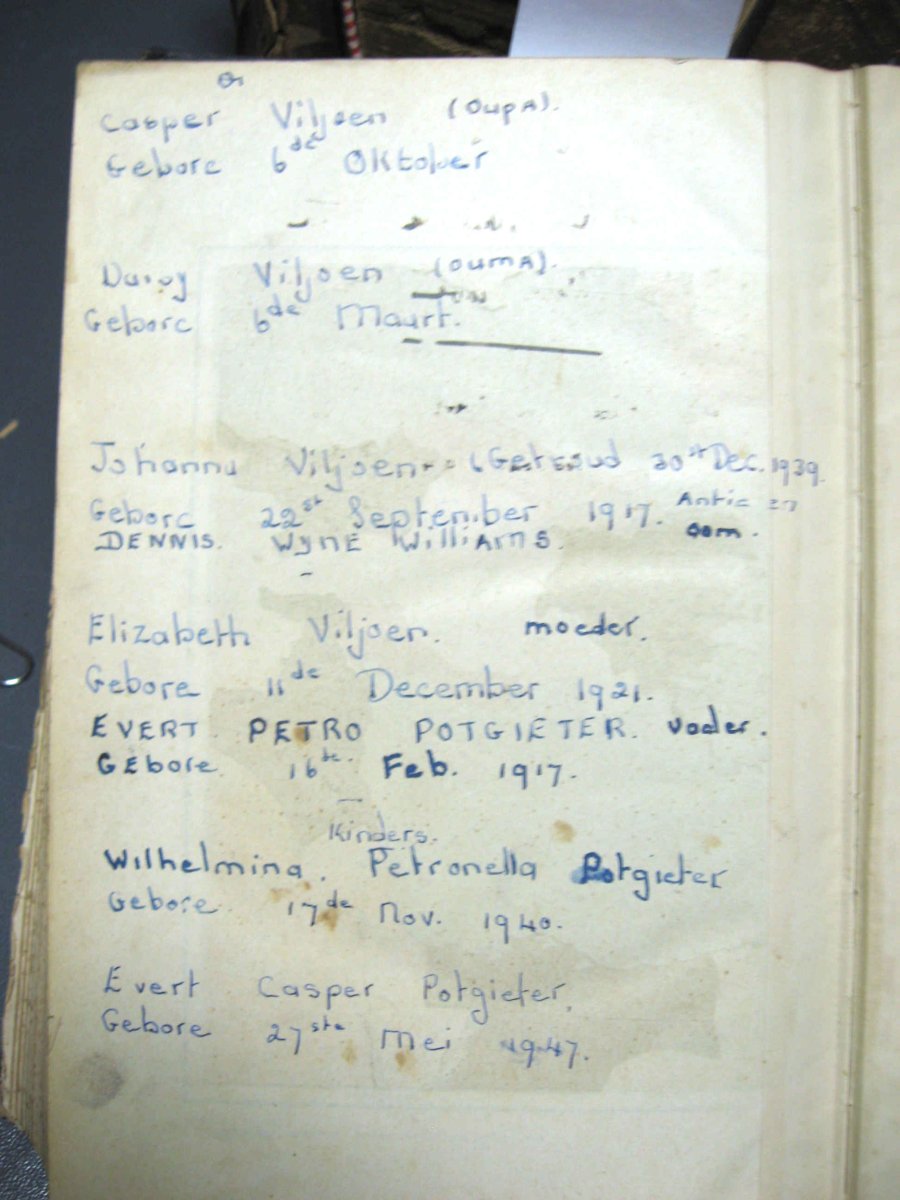 Casper Viljoen (OupA).
Gebore 6de Oktober
Daisy Viljoen (OumA).
Gebore 6de Maart.
Johanna Viljoen (Getroud 30st Dec. 1939.
Gebore 22st September 1917. Antie en
DENNIS. WYNE WilliAmS. oom.
Elizabeth Viljoen. moeder.
Gebore 11de December 1921.
EVERT PETRO POTGIETER. vader.
GEbore 16de Feb. 1917.
Kinders.
Wilhelmina. Petronella Potgieter
Gebore 17de Nov. 1940.
Evert Casper Potgieter.
Gebore 27ste Mei 1947.